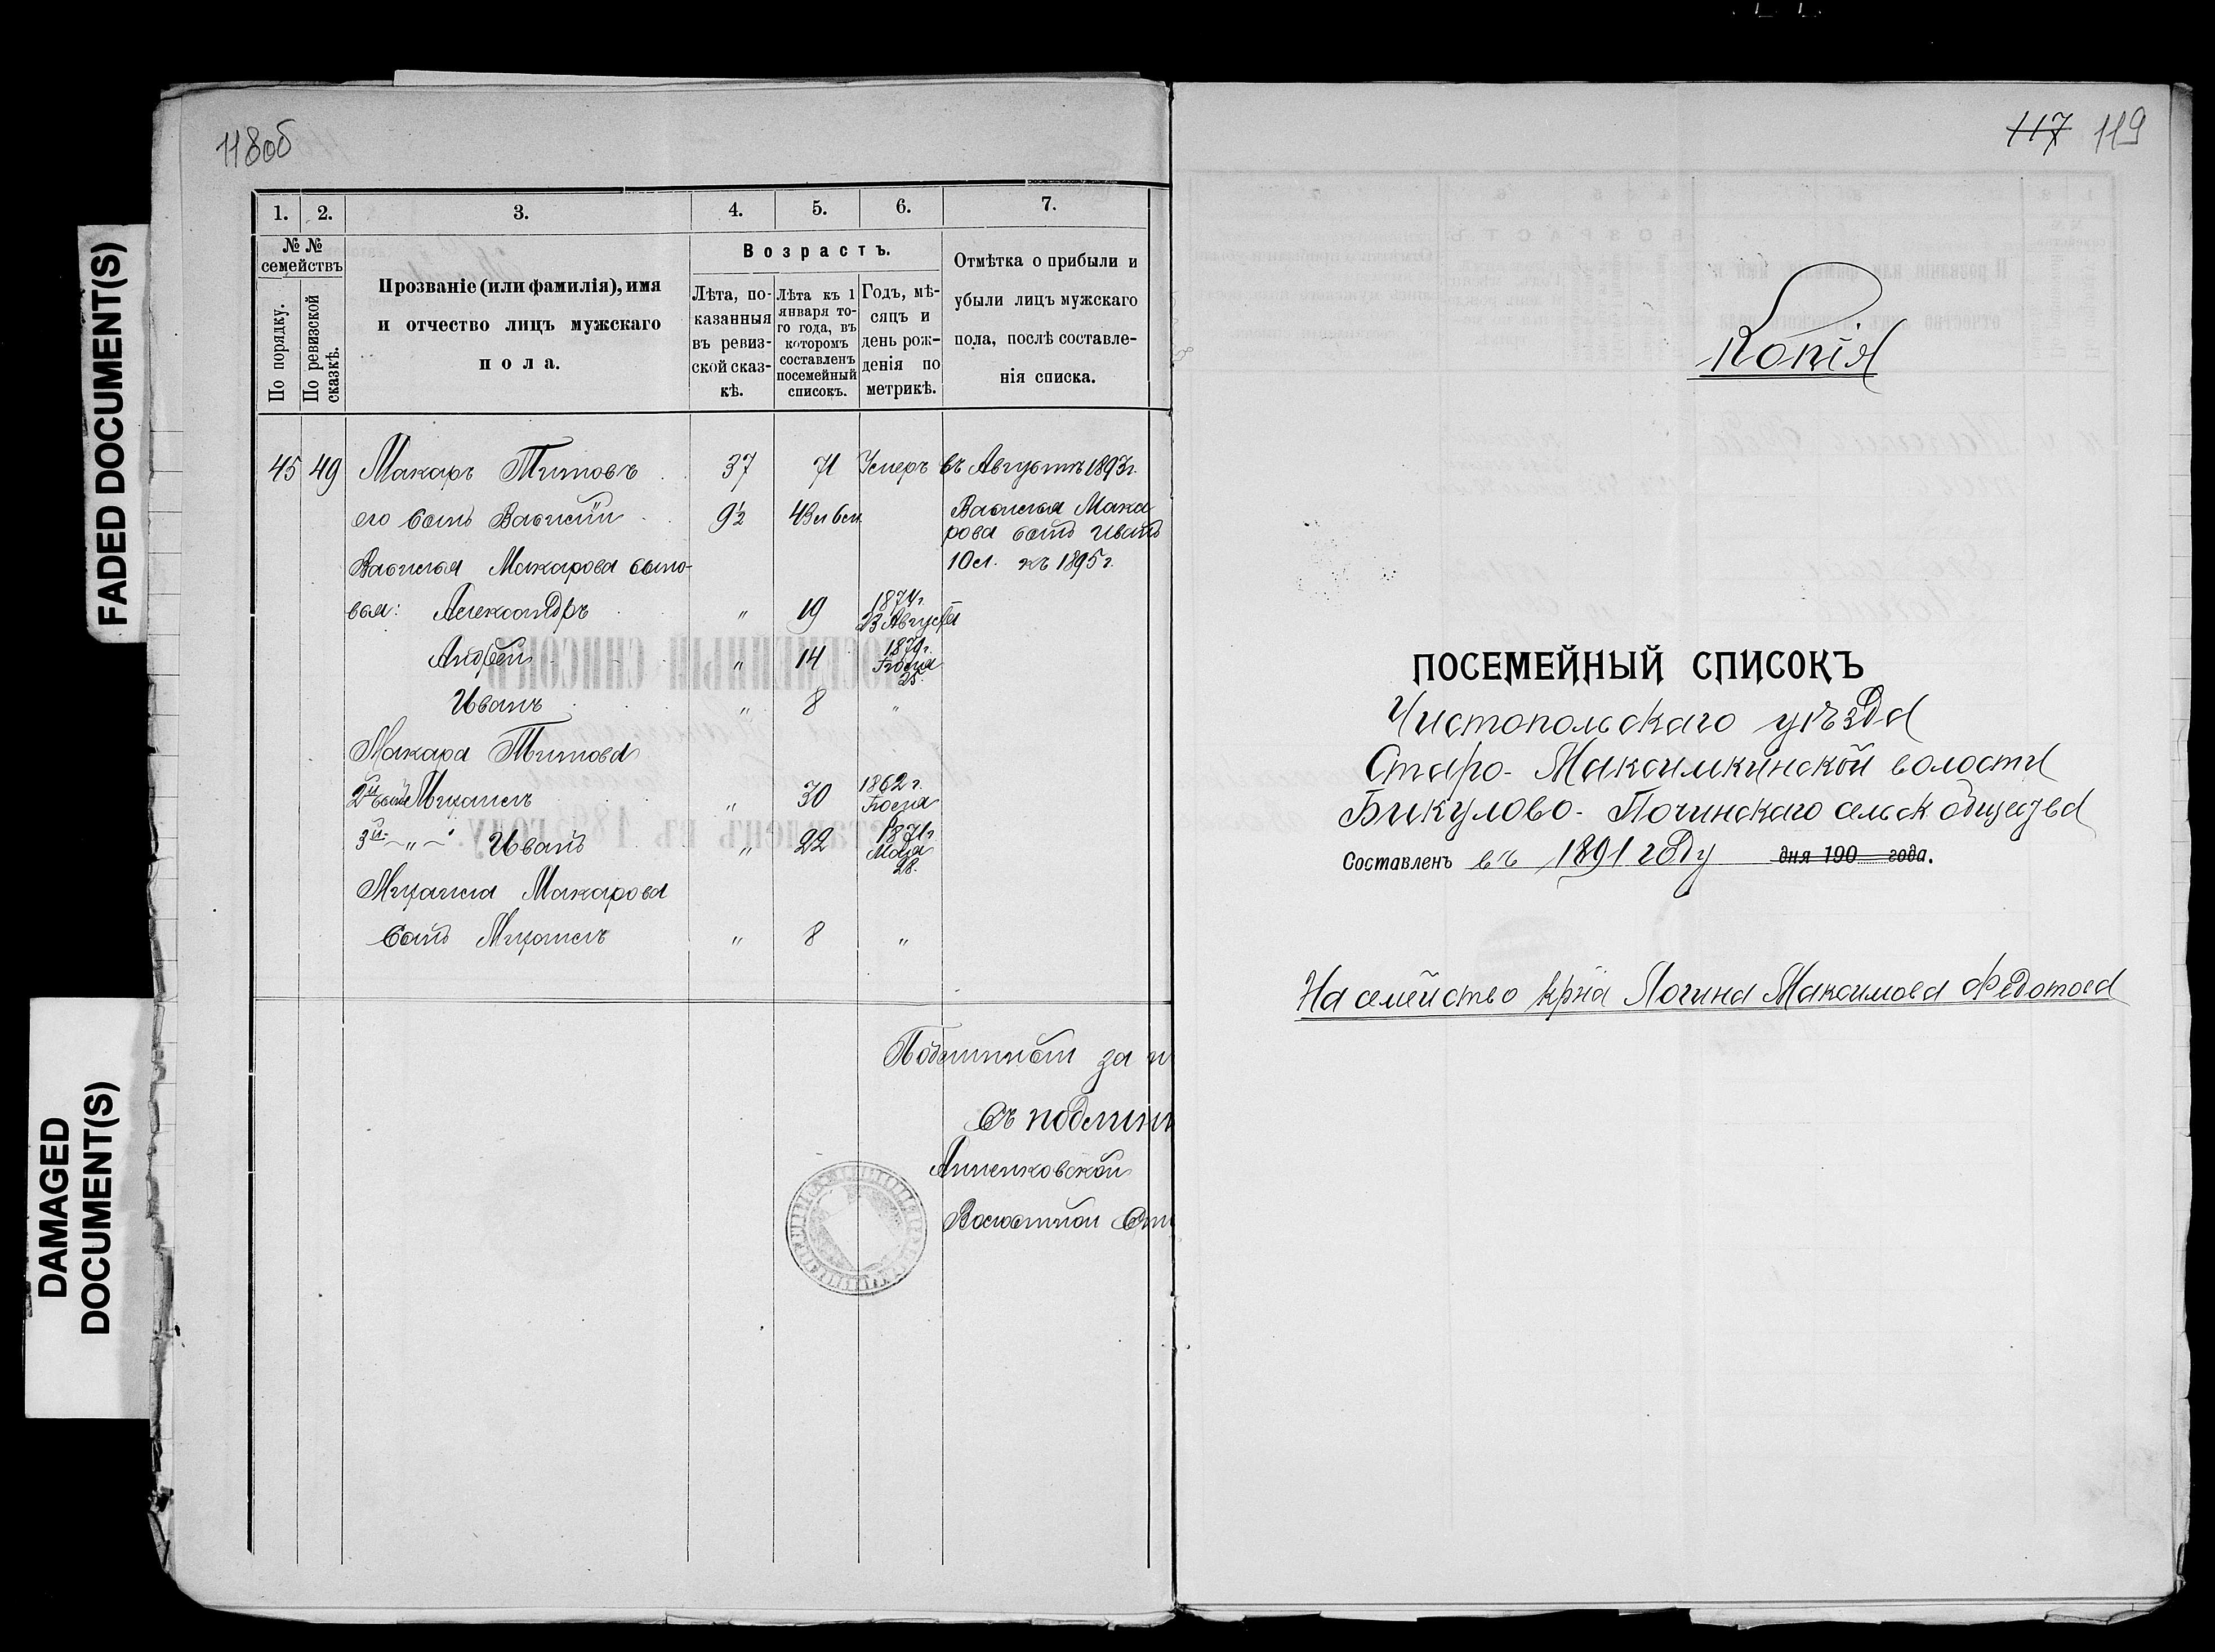 FADED DOCUMENT(S)
DAMAGED
DOCUMENT(S)
118об
1. 2. 3. 4. 5. 6. 7.
№ №
семействъ
По порядку.
По ревизской
сказкѣ.
Прозваніе (или фамилія), имя
и отчество лицъ мужскаго
пола.
Возрастъ.
Лѣта, по-
казанныя
въ ревиз-
ской сказ-
кѣ.
Лѣта къ 1
января то-
го года, въ
которомъ
составленъ
посемейный
списокъ.
Годъ, мѣ-
сяцъ и
день рож-
денія по
метрикѣ.
Отмѣтка о прибыли и
убыли лицъ мужскаго
пола, послѣ составле-
нія списка.
45 49 Макаръ Титовъ 37 71 Умеръ въ Августѣ 1893г.
его сынъ Василій 9½ 43
Василья Мака
рова сынъ Иванъ
Василья Макарова сыно- 10л. къ 1895г.
вья: Александръ „ 19 1874г. 23 Августа
Андрей „ 14 Іюня 25.
Иванъ „ 8 „
Макара Титова
2й сынъ Михаилъ „ 30 1862г. Іюня
3й „ Иванъ „ 22 1871г. Мая 28.
Михаила Макарова
сынъ Михаилъ „ 8 „
Подлинный за
Съ подлин
Анненковской
Волостной
117 119
Копія
ПОСЕМЕЙНЫЙ СПИСОКЪ
Чистопольскаго уѣзда
Старо-Максимкинской волости
Бикулово-Починскаго сельск. общества
Составленъ въ 1891 году дня 190 года.
На семейство кр-на Логина Максимова Федотова